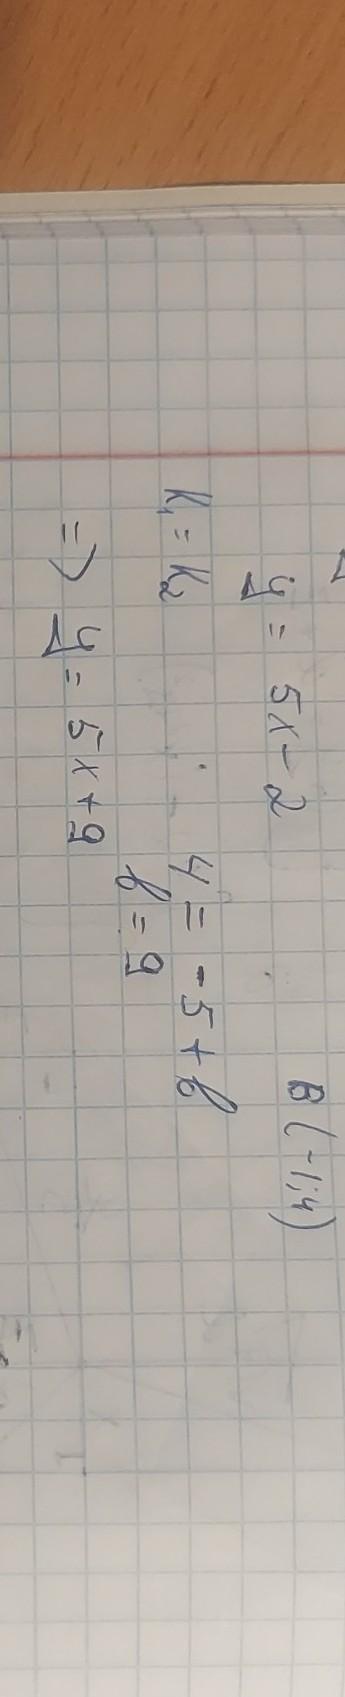 y = 5x - 2 B(-1;4)
k₁ = k₂ 4 = -5 + b
b = 9
=> y = 5x + 9